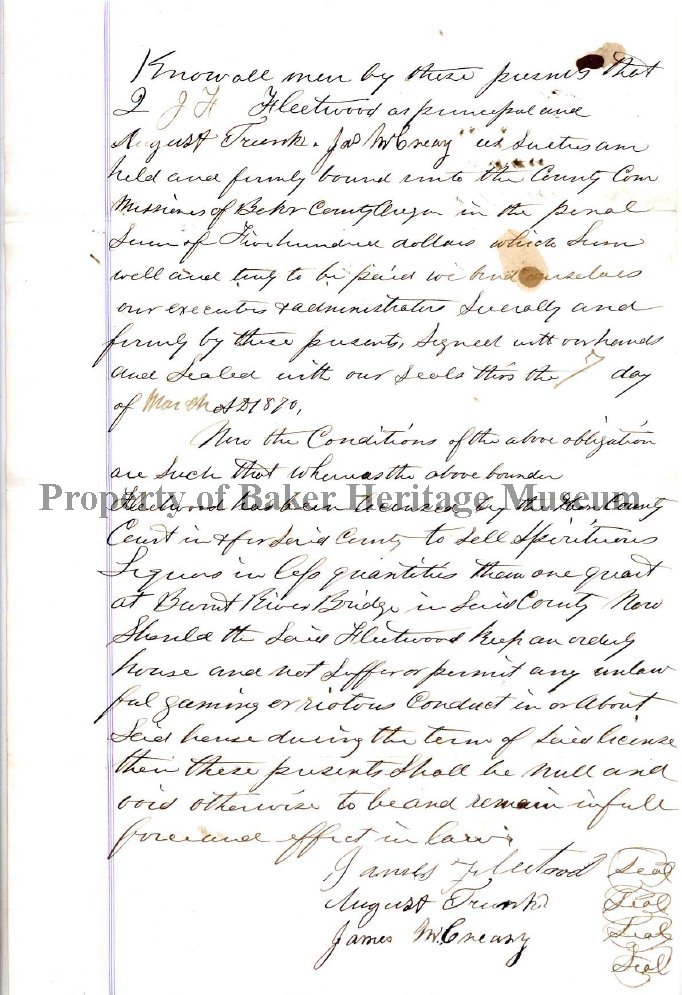 Know all men by these presents that
I J F Fleetwood as principal and
August Trunk. Jas McCreary as Sueties am
held and firmly bound unto the County Com
missiones of Baker County Oregon in the penal
Sum of Five hundred dollars which Sum
well and truly to be paid we bind ourselves
our executors & administrators Severally and
firmly by these presents, Signed with our hands
and Sealed with our Seals this the 7 day
of March AD 1870,
Now the Conditions of the above obligation
are Such that whereas the above bounden
Property of Baker Heritage Museum
Fleetwood has been licensed by the Hon County
Court in & for Said County to Sell Spirituous
Liquors in less quantities than one quart
at Burnt River Bridge in Said County Now
Should the Said Fleetwood Keep an orderly
house and not Suffer or permit any unlaw
ful gaming or riotous Conduct in or About
Said house during the term of Said license
then these presents Shall be Null and
void otherwise to be and remain in full
force and effect in law.
James Fleetwood Seal
August Trunk. Seal
James McCreary Seal
Seal